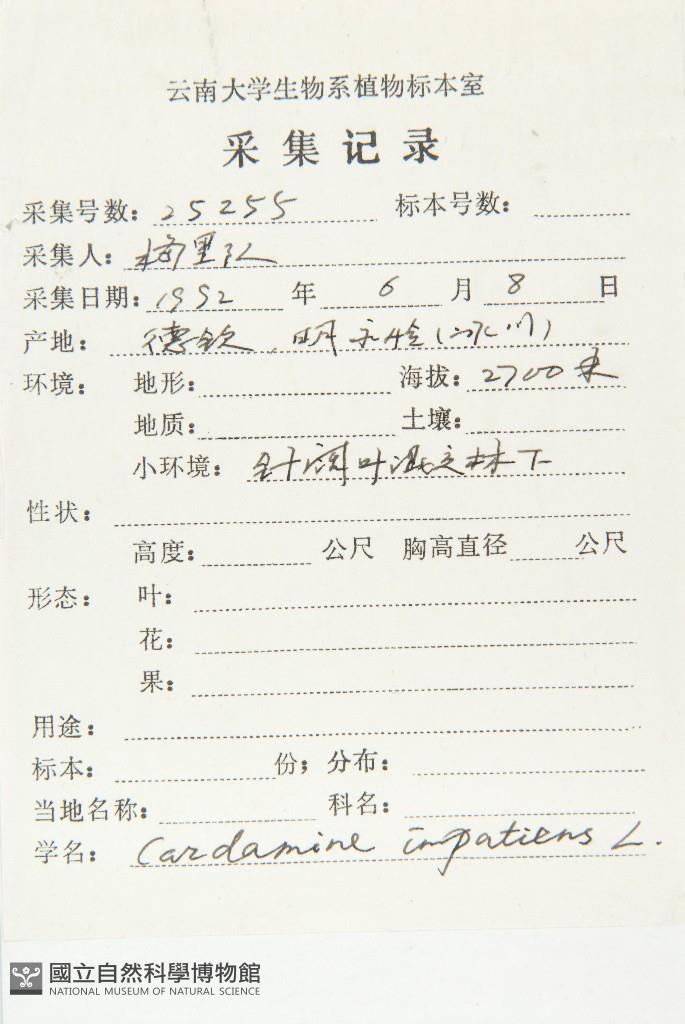 云南大学生物系植物标本室
采集记录
采集号数: 25255 标本号数:
采集人: 梅里队
采集日期: 1992 年 6 月 8 日
产地: 德钦, 明永恰(冰川)
环境: 地形: 海拔: 2700米
地质: 土壤:
小环境: 针阔叶混交林下
性状:
高度: 公尺 胸高直径 公尺
形态: 叶:
花:
果:
用途:
标本: 份; 分布:
当地名称: 科名:
学名: Cardamine impatiens L.
國立自然科學博物館
NATIONAL MUSEUM OF NATURAL SCIENCE